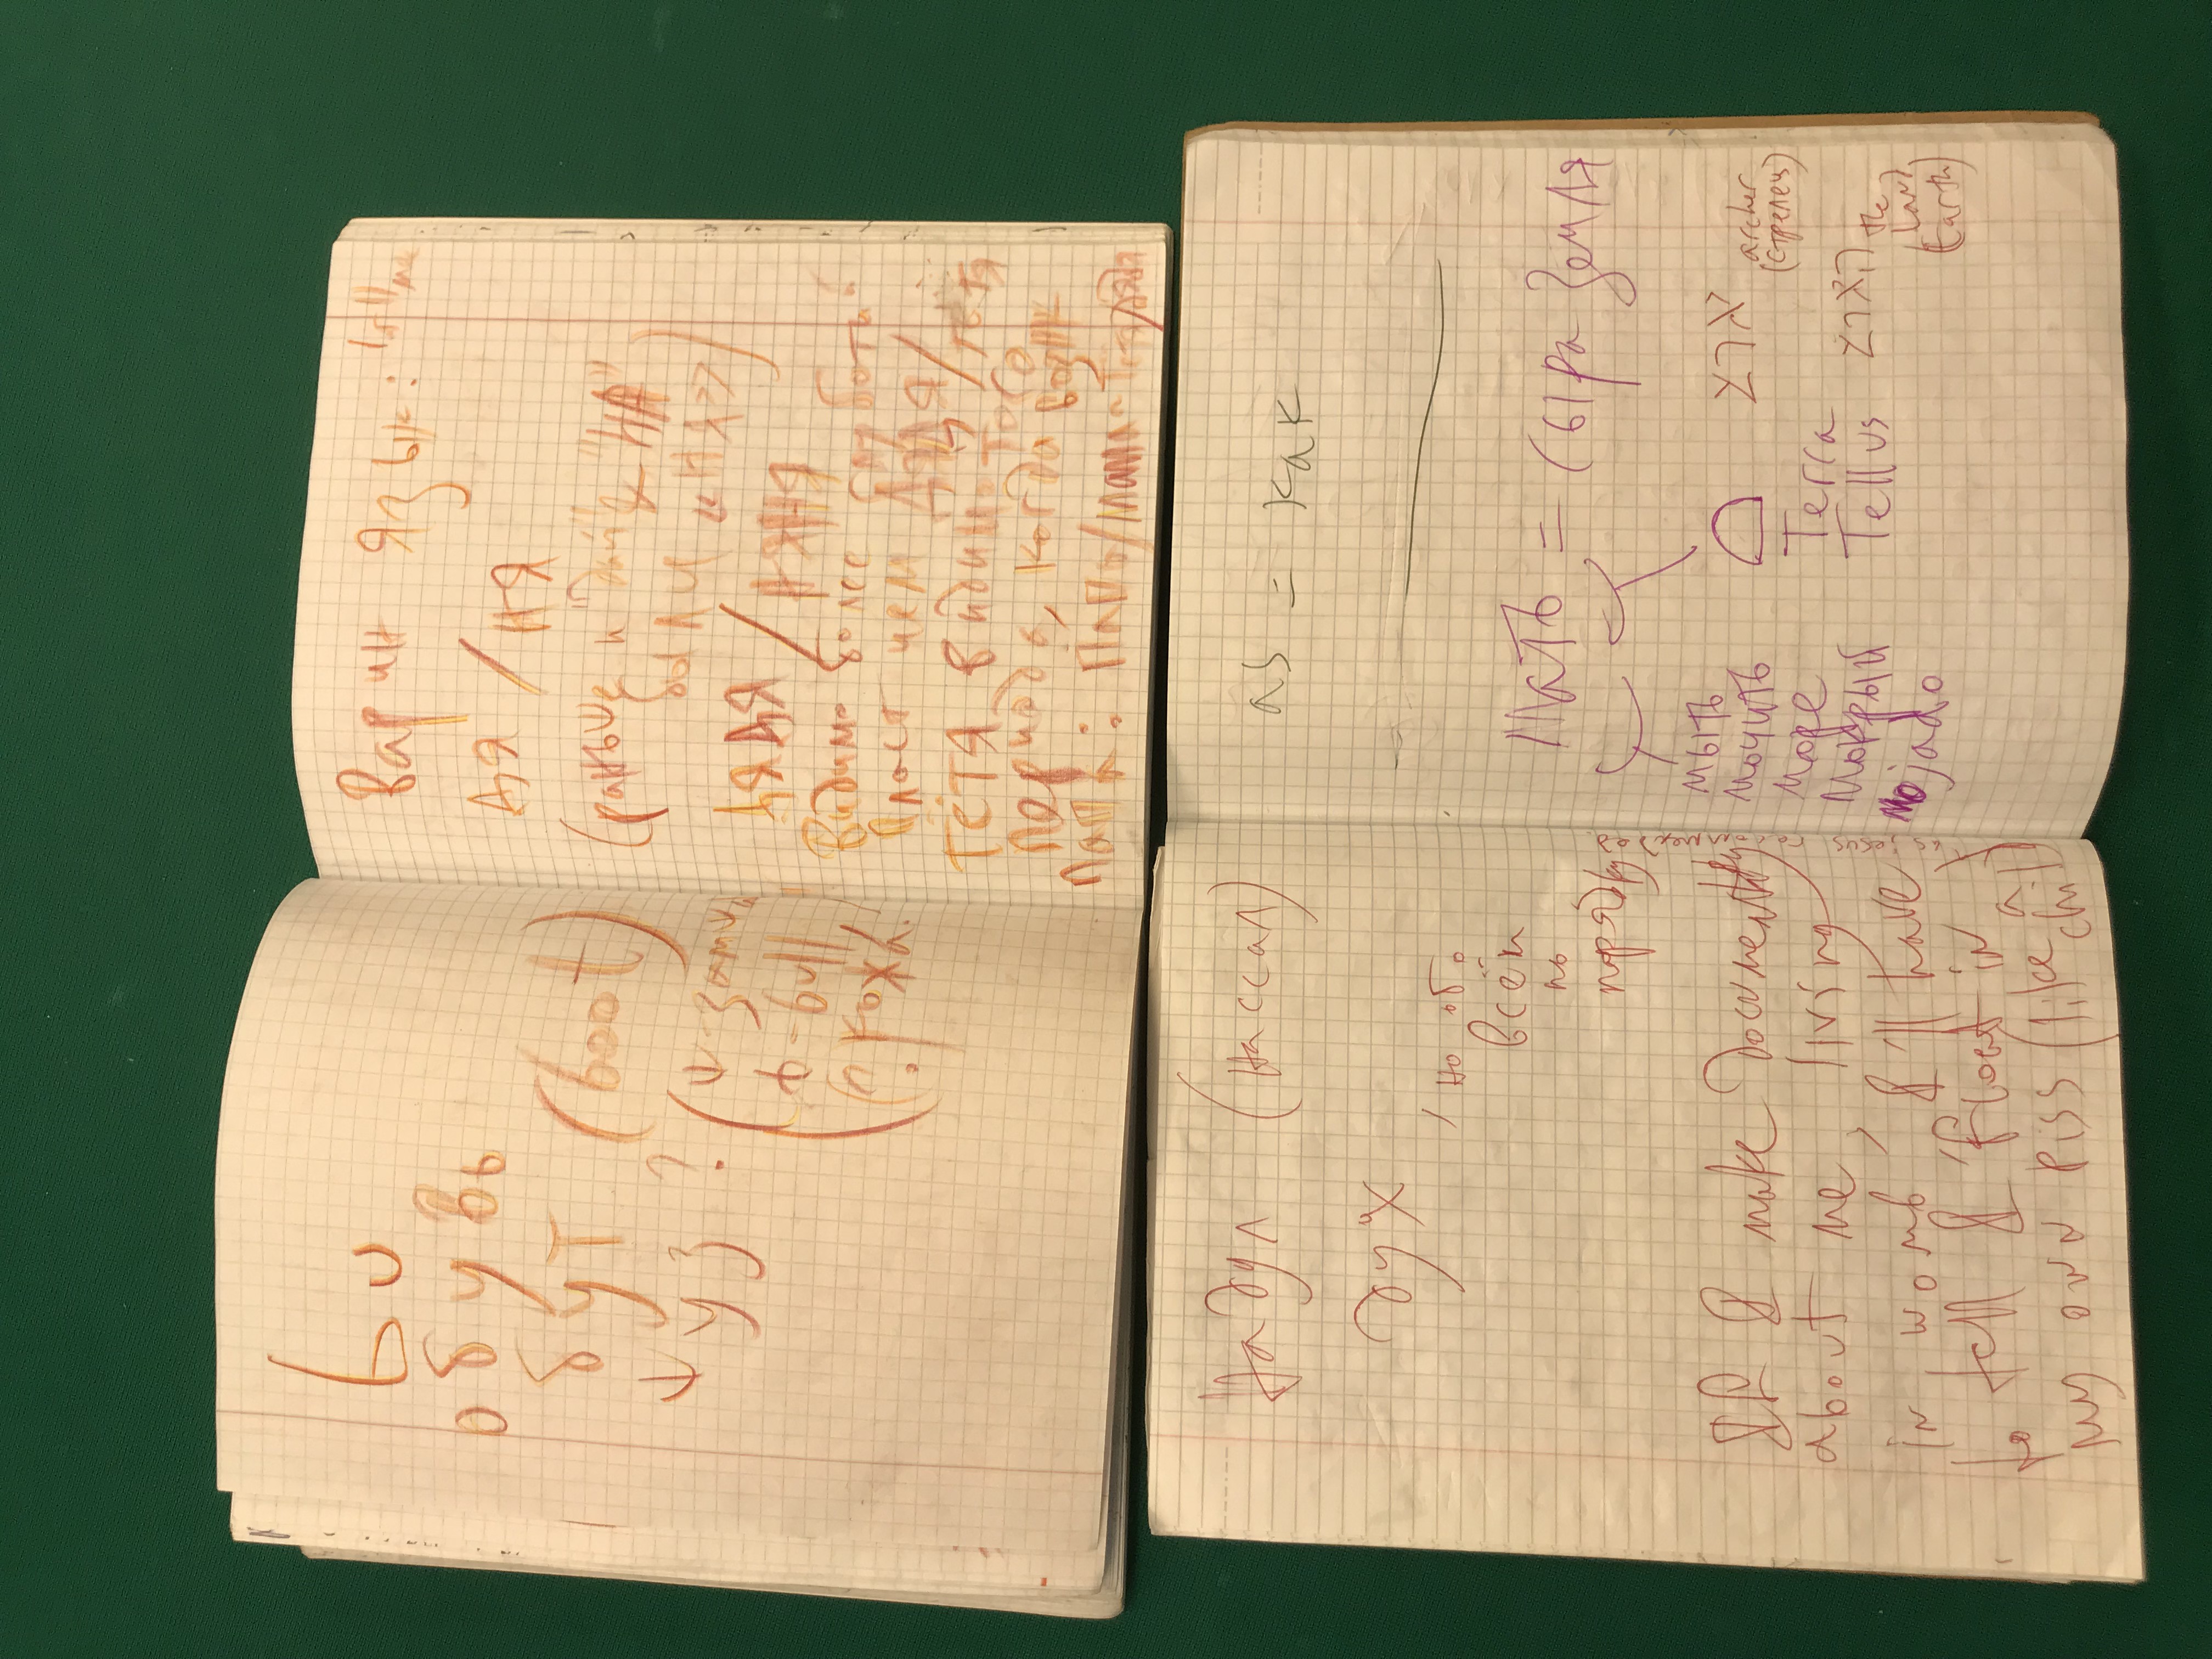 обувь
бут (boot)
ψуз?
(ψ-замша
b-bull
(?) кожа.
Варин язык:
ДЯ / НЯ
(раньше и "дай" & "НА"
были «НЯ»)
ДЯДЯ / НЯНЯ
Видимо более глубокий
пласт чем ДЯДЯ/тётя
ТЁТЯ видимо того
периода, когда возник
папа: папа/мама-тётя/дядя
Надул (нассал)
дух
, но обо
всём
по
порядку
If I make documentary
about me, living
in womb, I'll have
to tell I float in
my own piss (like a
child)
us jesus recommended.
as = как
Мать = Сыра Земля
мыть
мочить
море
мокрый
mojado
Terra
Tellus
archer
(стрелец)
the
Land
(Earth)